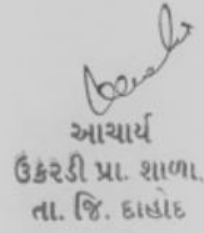 આચાર્ય
ઉકરડી પ્રા. શાળા.
તા. જિ. દાહોદ